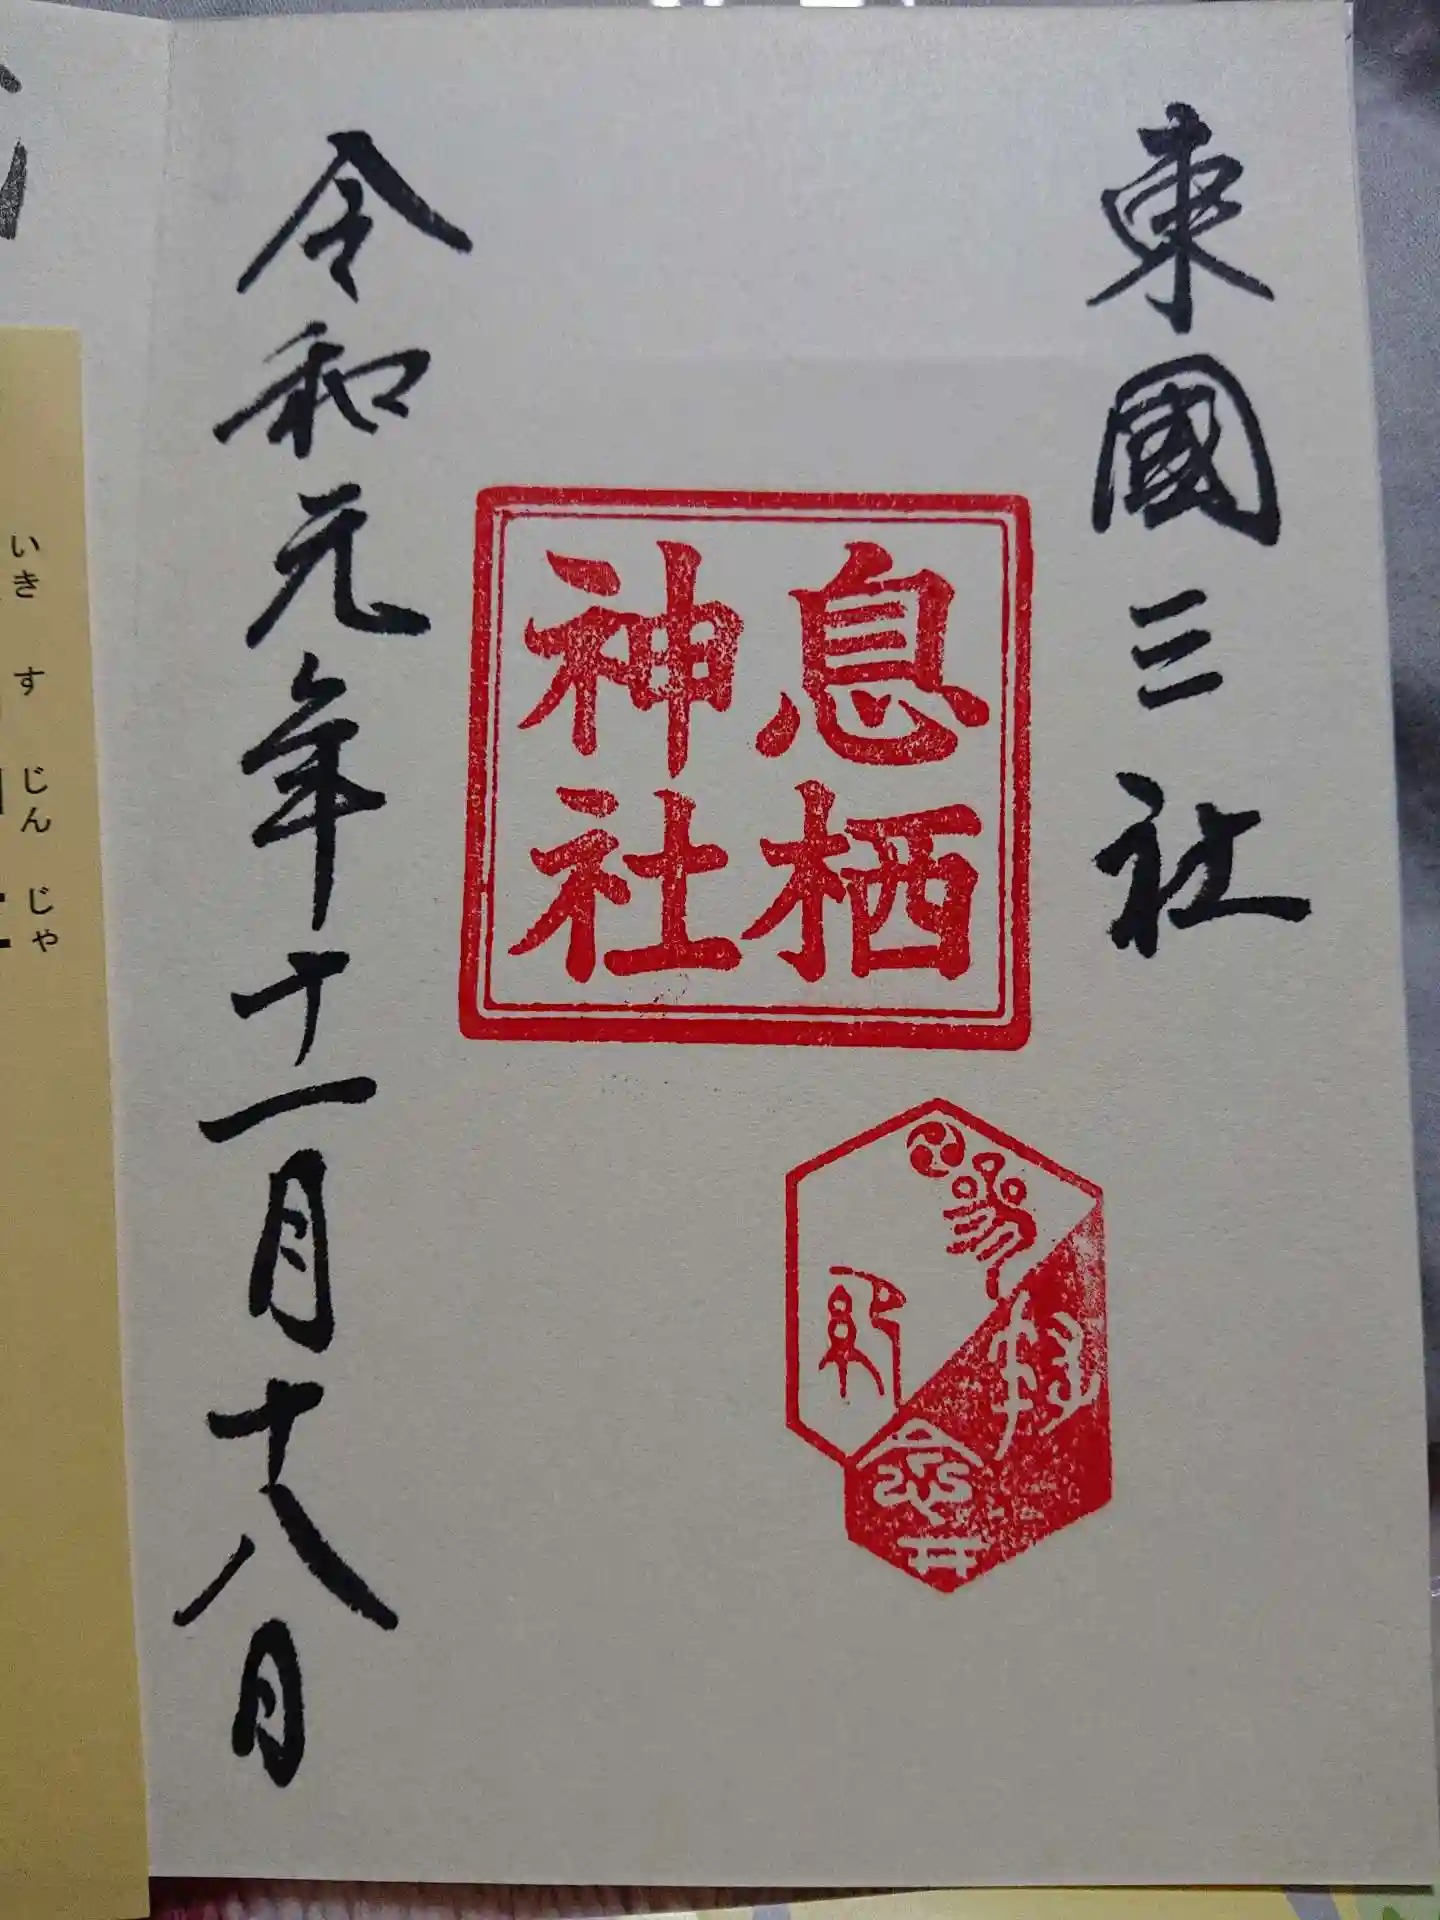 東國三社
息栖
神社
令和元年十一月十八日
いきすじんじゃ